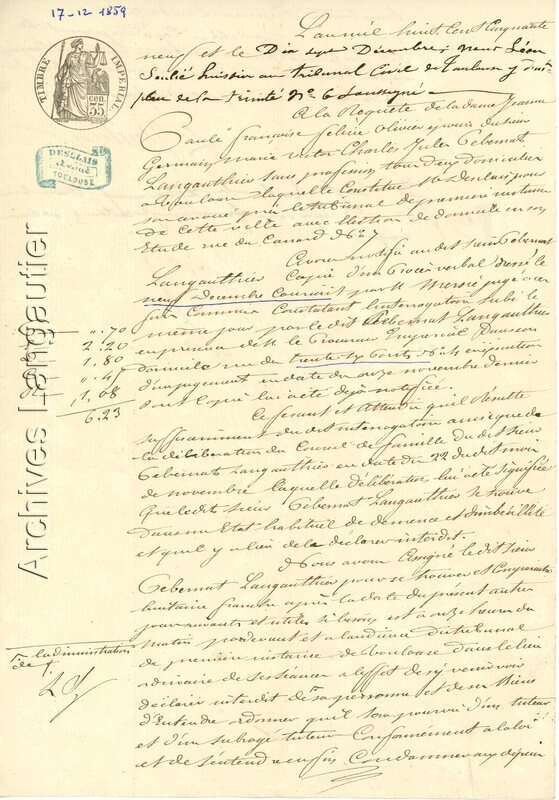 17-12 1859
L'an mil huit cent Cinquante
neuf et le Dix sept Décembre, nous Léon
huissier au tribunal Civil de Toulouse y
place de la trinité No 6 Soussigné
A la Requête de la dame Jeanne
Paule françoise félicie Olivier épouse du sieur
Germain, Marie Victor Charles Jules Gebernat
Langauthier sans profession, tous deux domiciliés
à Toulouse laquelle Constitue Me Desclais pour
son avoué près le tribunal de première instance
de cette ville avec élection de domicile en son
Etude rue du Canard No 7
Avons notifié audit sieur Gebernat
Langauthier Copie d'un Procès verbal dressé le
neuf Décembre Courant par M. Mercié juge à ce
Commis Constatant l'interrogatoire subi le
même jour par le dit Gebernat Langauthier
en présence de M. le Procureur Impérial
domicile rue des trente six Ponts No 4
d'un jugement en date du onze novembre dernier
dont Copie lui a été déjà notifiée.
Ce faisant et Attendu qu'il Résulte
suffisamment du dit interrogatoire ainsi que de
la délibération du Conseil de famille du dit sieur
Gebernat Langauthier en date du 22 du dit mois
de novembre laquelle délibération lui a été signifiée
Que le dit sieur Gebernat Langauthier se trouve
dans un Etat habituel de démence et d'imbécillité
et qu'il y a lieu de le déclarer interdit.
Nous avons assigné le dit sieur
Gebernat Langauthier pour se trouver et Comparaitre
huitaine franche après la date du présent autres
jours suivants et utiles si besoin est à onze heures du
matin pardevant et à l'audience du tribunal
de première instance de Toulouse dans le lieu
ordinaire de ses séances à l'effet de s'y venir voir
déclarer interdit de sa personne et de ses Biens
d'Entendre ordonner qu'il sera pourvu d'un tuteur
et d'un subrogé tuteur Conformément à la loi
et de s'entendre enfin Condamner aux dépens
TIMBRE IMPÉRIAL
35 cen.
DESCLAIS
Avoué
TOULOUSE
".70
2.20
1.80
".45
1.08
6.23
l'administration
de
Archives Langautier